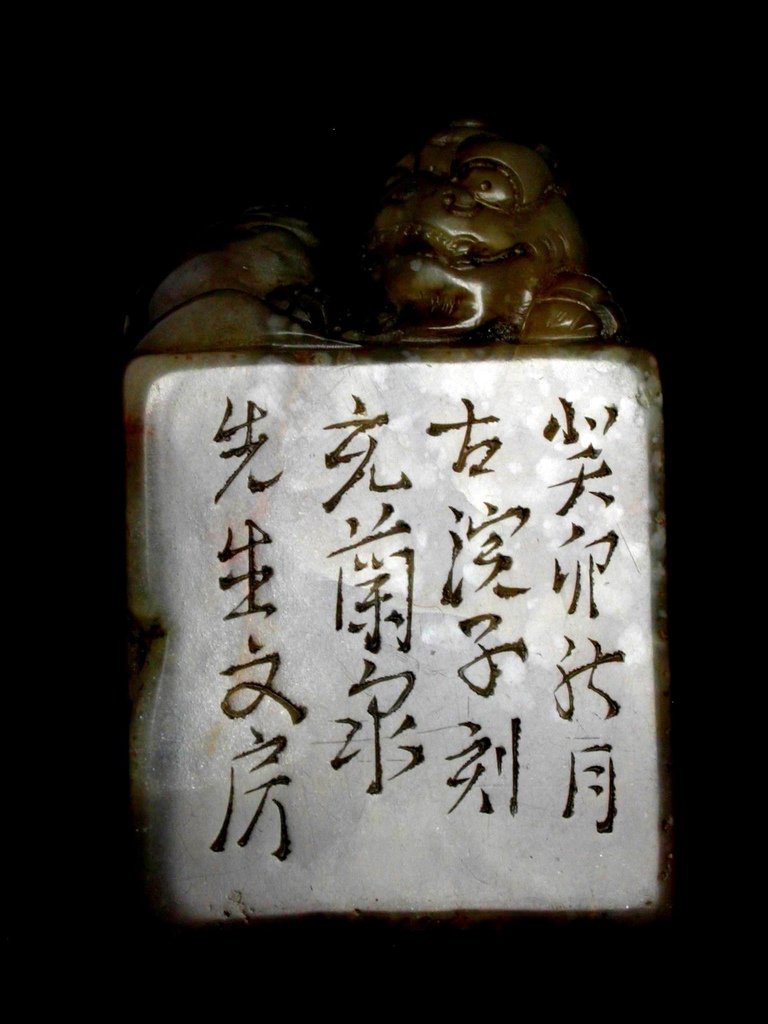 癸卯秋月
古浣子刻
充蘭泉
先生文房